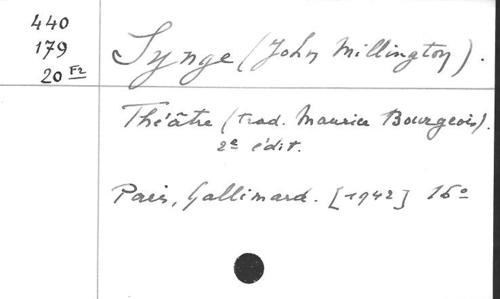 440
179
20 F2
Synge (John Millington).
Théâtre (trad. Maurice Bourgeois).
2e édit.
Paris, Gallimard. [1942] 16o